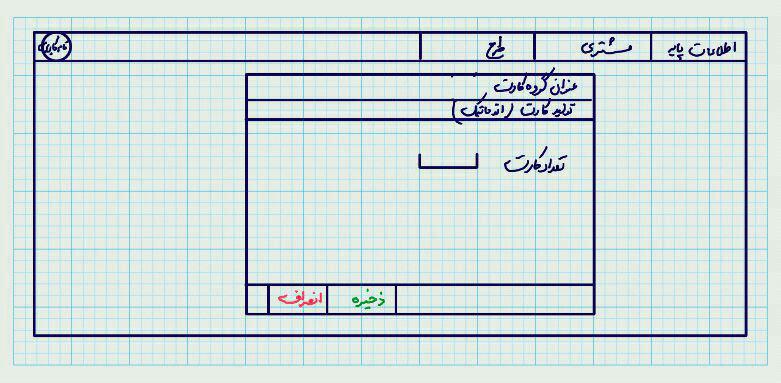 اطلاعات پایه
مشتری
طرح
نام کاربری
عنوان گروه کارت
تولید کارت (اتوماتیک)
تعداد کارت
ذخیره
انصراف